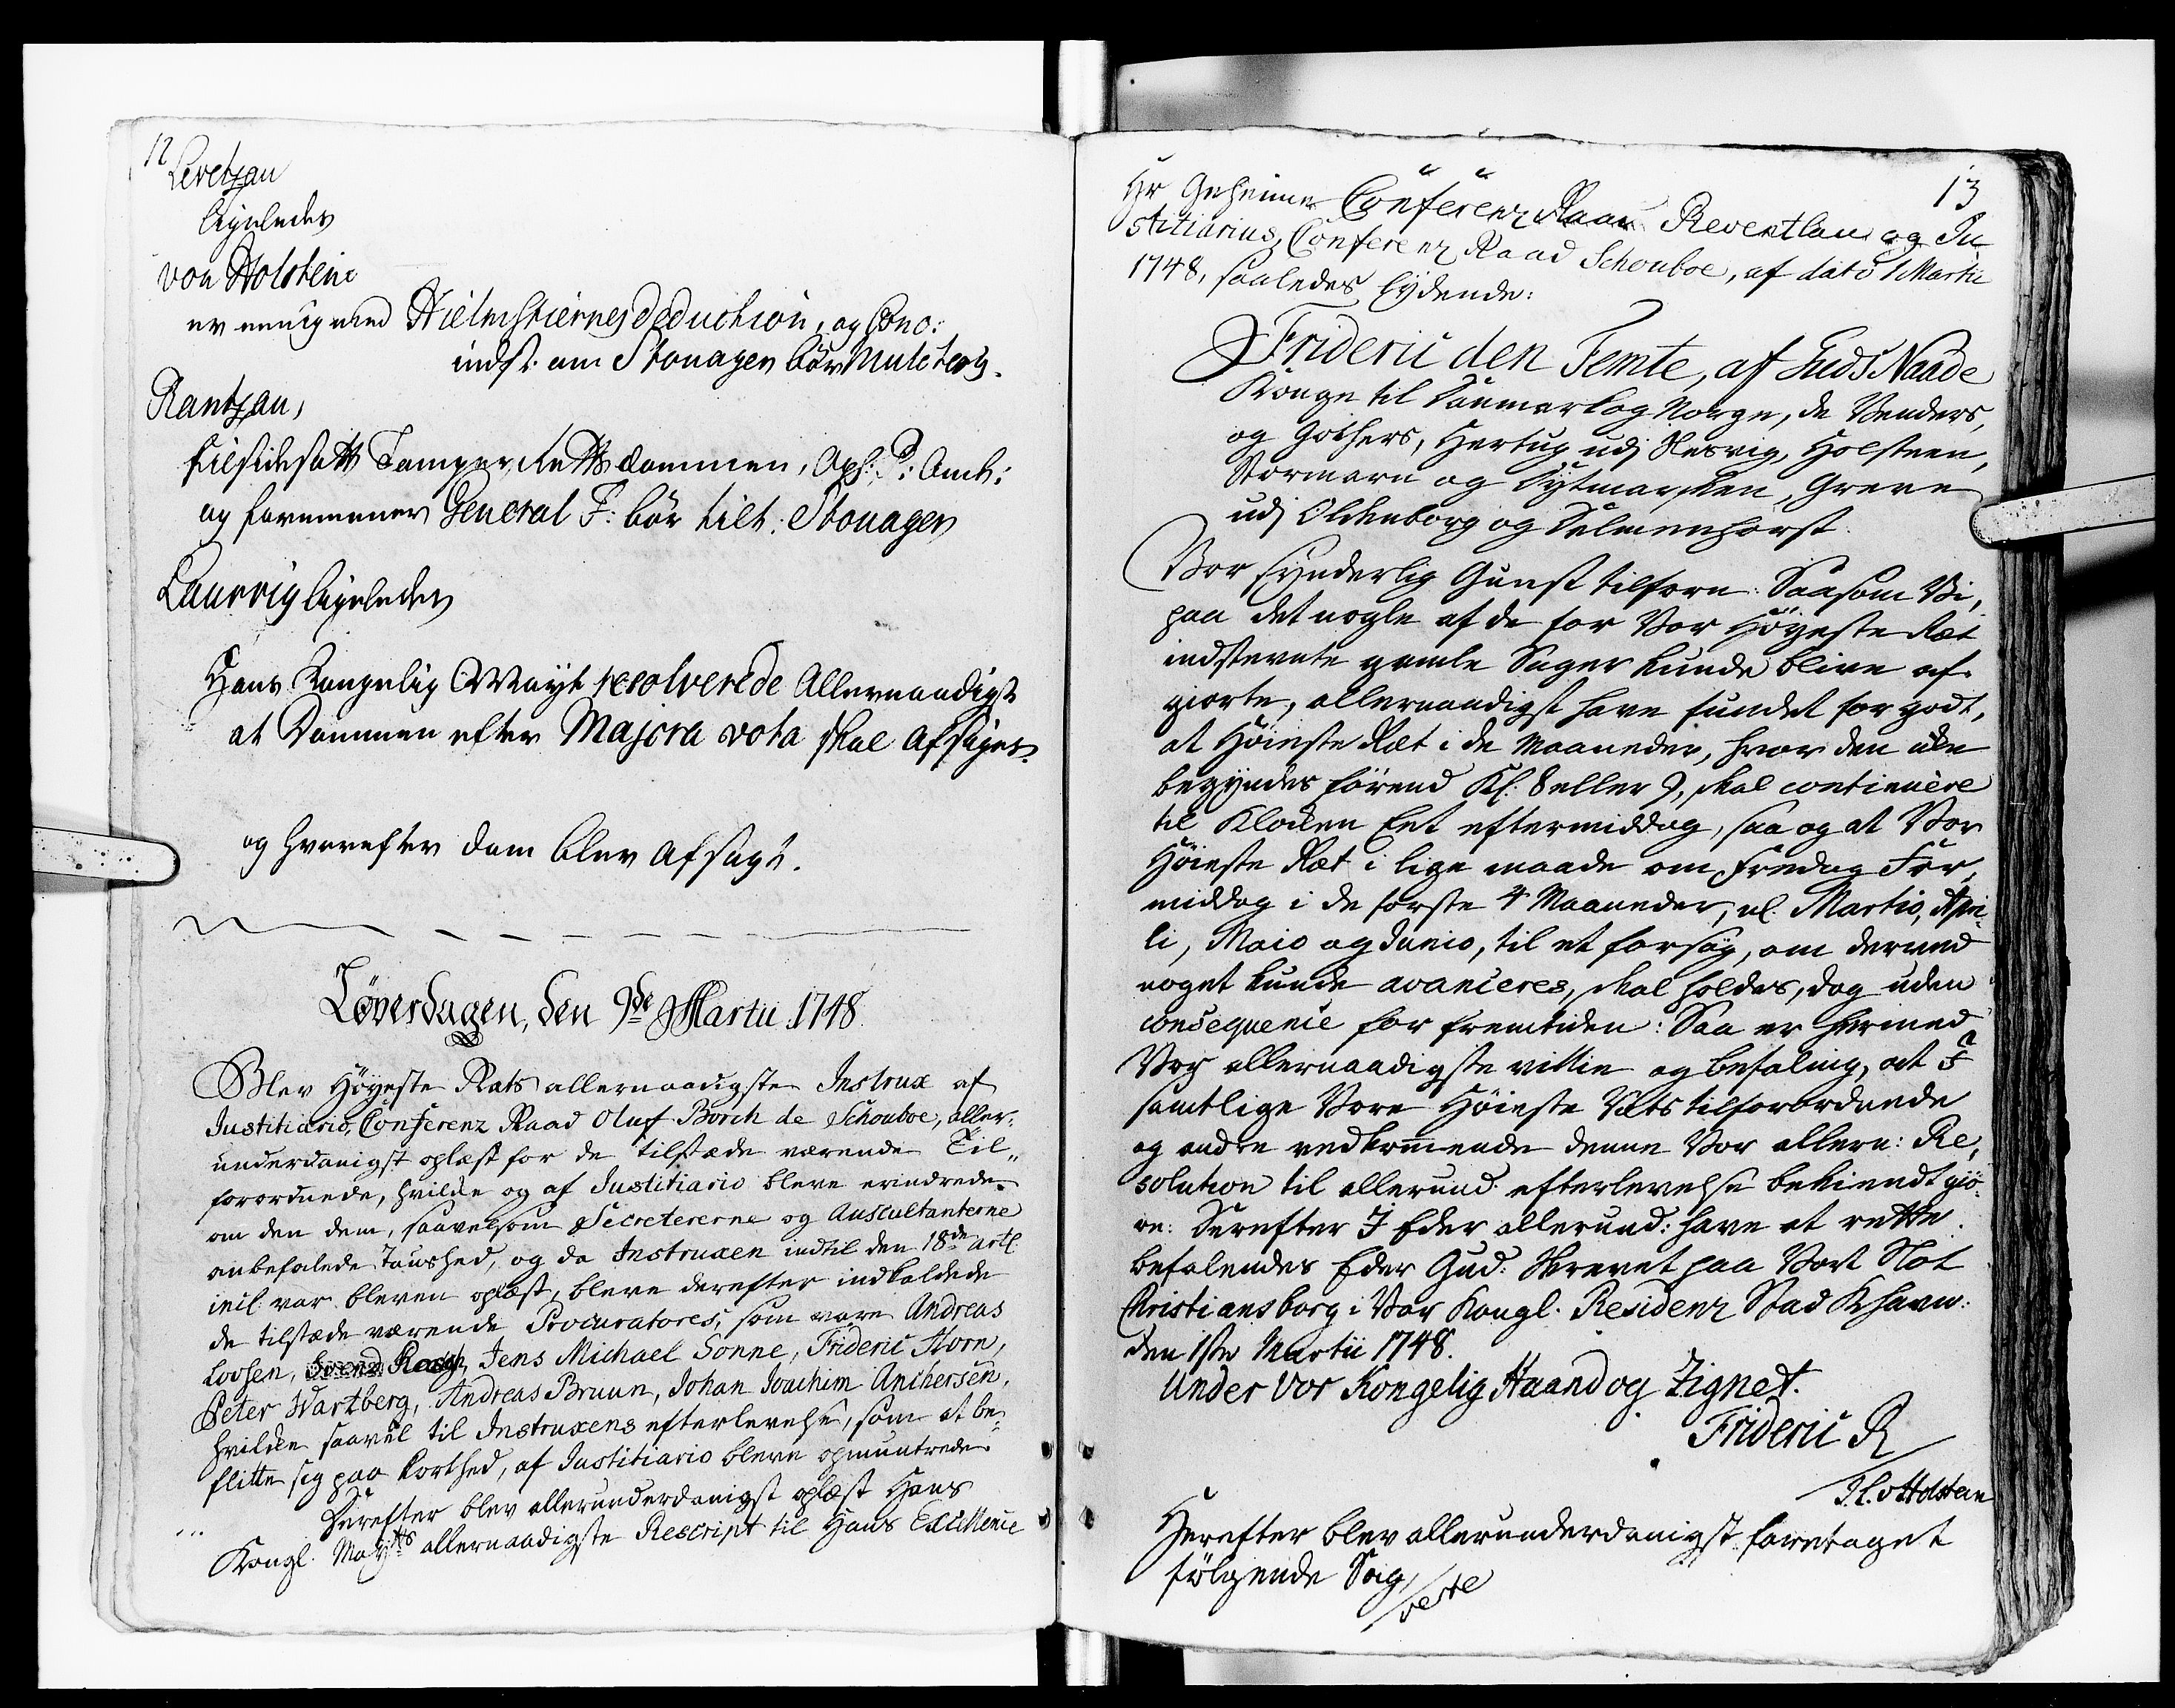 12
Levetzau
ligeledes
von Holstein
er enig med Hielmstiernes deduction, og Cono:
indst. om Stouagen bør Mulcteris.
Rantzau,
tilsidesatte Tamper Retts dommen, Oph: P: Amb:
og formeener General F: bør tilt: Stouagen
Laurvig ligeledes
Hans Kongelig Mayt resolverede Allernaadigst
at Dommen efter Majora vota skal Afsiges.
og hvorefter dom blev Afsagt.
Löverdagen, den 9de Martii 1748.
Blev Höyeste Rets allernaadigste Instrux af
Justitiario, Conferenz Raad Oluf Borch de Schouboe, aller-
underdanigst oplæst for de tilstæde værende Til-
forordnede, hvilke og af Justitiario bleve erindrede
om den dem, saavelsom Secretererne og Auscultanterne
anbefalede Taushed, og da Instruxen indtil den 18de artl
incl: var bleven oplæst, bleve derefter indkaldede
de tilstæde værende Procuratores, som vare Andreas
Lovsen, Jens Michael Sonne, Frideric Horn,
Peter Wartberg, Andreas Bruun, Johan Joachim Anchersen,
hvilke saavel til Instruxens efterlevelse, som at be-
flitte sig paa korthed, af Justitiario bleve opmuntrede.
Derefter blev allerunderdanigst oplæst Hans
Kongl. Mayts allernaadigste Rescript til Hans Excellence
13
Hr Geheime Conferenz Raad Reventlau og Ju-
stitiarius, Conferenz Raad Schouboe, af dato 1 Martii
1748, saaledes lydende:
Frideric den Femte, af Guds Naade
Konge til Danmark og Norge, de Venders,
og Gothers, Hertug udj Slesvig, Holsteen,
Stormarn og Dytmarsken, Greve
udj Oldenborg og Delmenhorst.
Vor synderlig Gunst tilforn. Saasom Vi,
paa det nogle af de for Vor Höyeste Ret
indstevnte gamle Sager kunde blive af-
giorte, allernaadigst have fundet for godt,
at Höieste Ret i de Maaneder, hvor den icke
begyndes förend Kl: 8 eller 9, skal continuere
til Klocken Eet eftermiddag, saa og at Vor
Höieste Ret i lige maade om Fredag For-
middag i de förste 4 Maaneder, nl. Martio, Apri-
li, Maio og Junio, til et forsög, om derved
noget kunde avanceres, skal holdes, dog uden
consequence for fremtiden: Saa er hermed
Vor allernaadigste villie og befaling, at I
samtlige Vore Höieste Rets tilforordnede
og andre vedkommende denne Vor allern: Re-
solution til allerund: efterlevelse bekiendtgiö-
re: Derefter I Eder allerund: have at rette.
Befalendes Eder Gud. Skrevet paa Vort Slot
Christiansborg i Vor Kongl. Residenz Stad Khavn:
den 1ste Martii 1748.
Under Vor Kongelig Haand og Zignet.
Frideric R
J. L. v Holstein
Herefter blev allerunderdanigst foretaget
fölgende Sag,